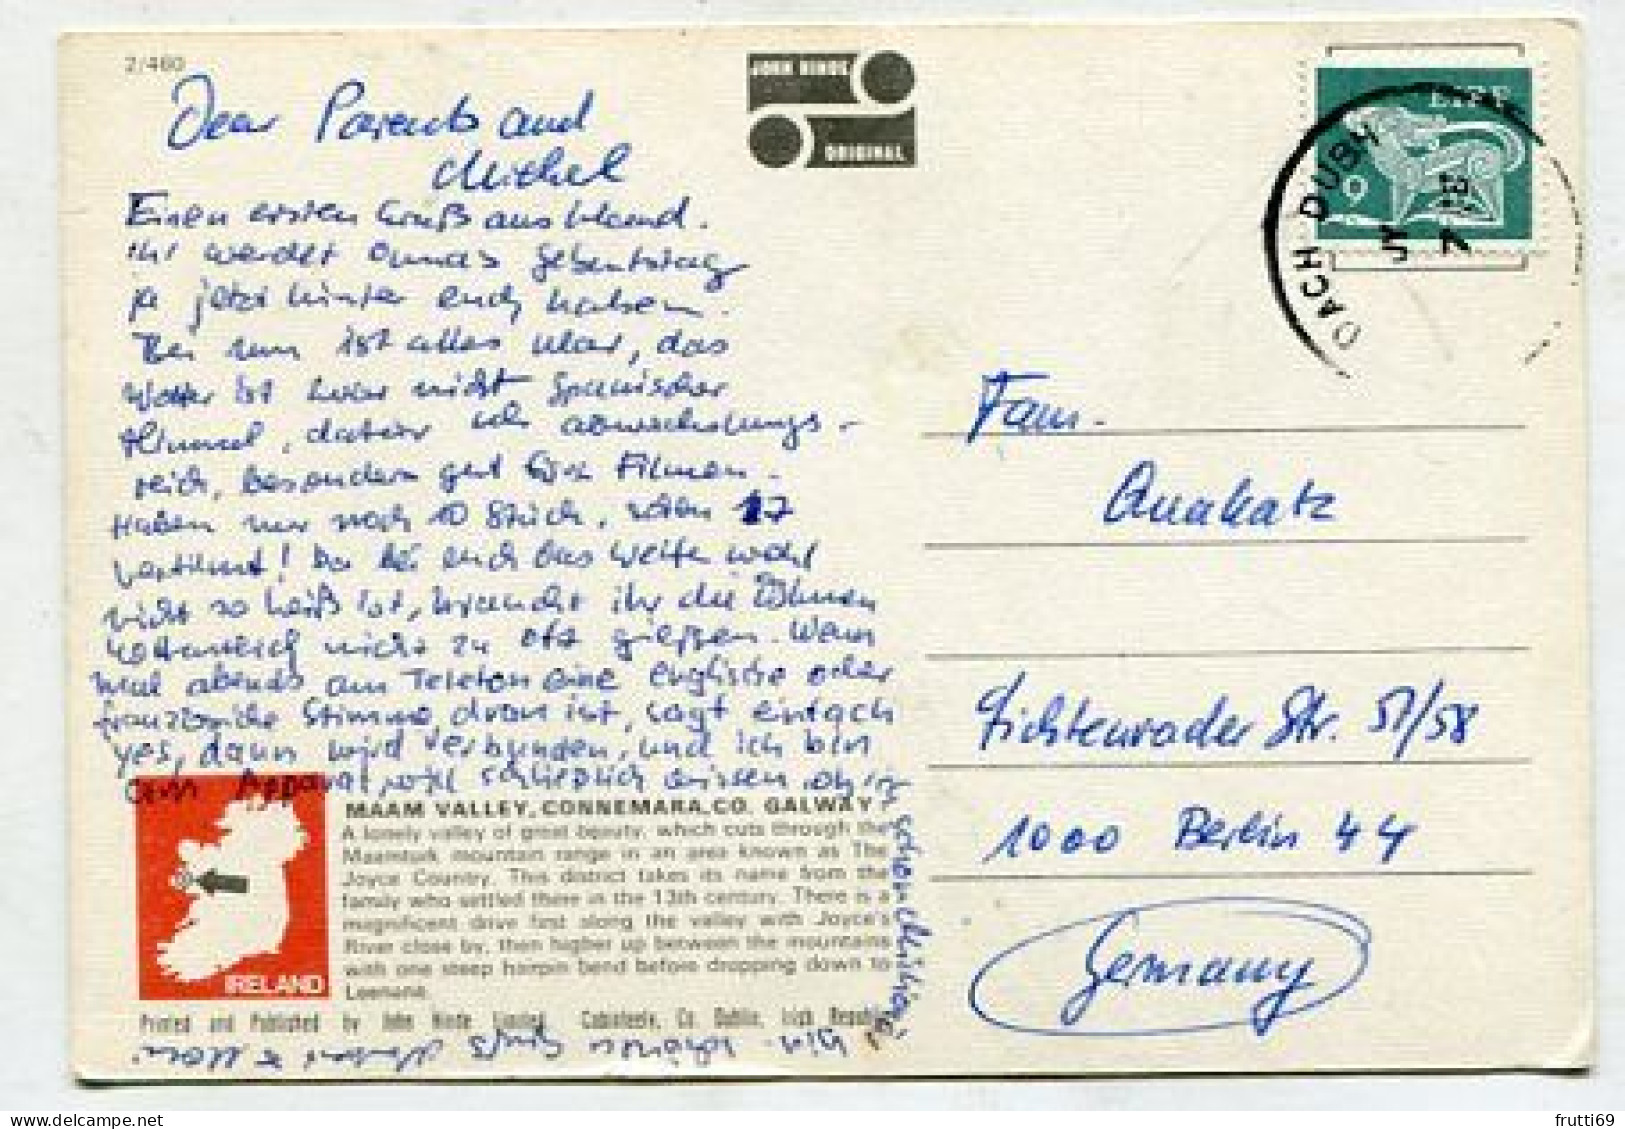 2/460
JOHN HINDE
ORIGINAL
EIRE
9
DACH DUBH
7
JY
Dear Parents and
Michel
Einen ersten Gruß aus Irland.
Ihr werdet Omas Geburtstag
ja jetzt hinter euch haben.
Bei uns ist alles klar, das
Wetter ist zwar nicht Spanischer
Himmel, dafür sehr abwechslungs-
reich, besonders gut fürs Filmen.
Haben nur noch 10 Stück, schon 17
verfilmt! Da bei euch das Wetter wohl
nicht so heiß ist, braucht ihr die Blumen
hoffentlich nicht zu oft gießen. Wenn
mal abends am Telefon eine englische oder
französische Stimme dran ist, sagt einfach
yes, dann wird verbunden, und ich bin
am Apparat, will schließlich wissen ob ich
schon
bin. schönen Gruß
MAAM VALLEY, CONNEMARA, CO. GALWAY
A lonely valley of great beauty, which cuts through the
Maamturk mountain range in an area known as The
Joyce Country. This district takes its name from the
family who settled there in the 13th century. There is a
magnificent drive first along the valley with Joyce's
River close by, then higher up between the mountains
with one steep hairpin bend before dropping down to
Leenane.
IRELAND
Printed and Published by John Hinde Limited, Cabinteely, Co. Dublin, Irish Republic
Fam.
Anakatz
Lichtenrader Str. 57/58
1000 Berlin 44
Germany
frutti69